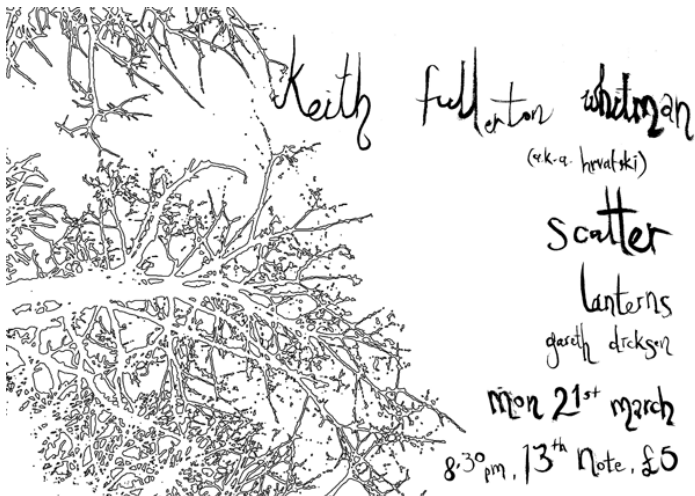 Keith fullerton whitman
(a.k.a. hrvatski)
scatter
lanterns
gareth dickson
mon 21st march
8.30pm, 13th Note, £5